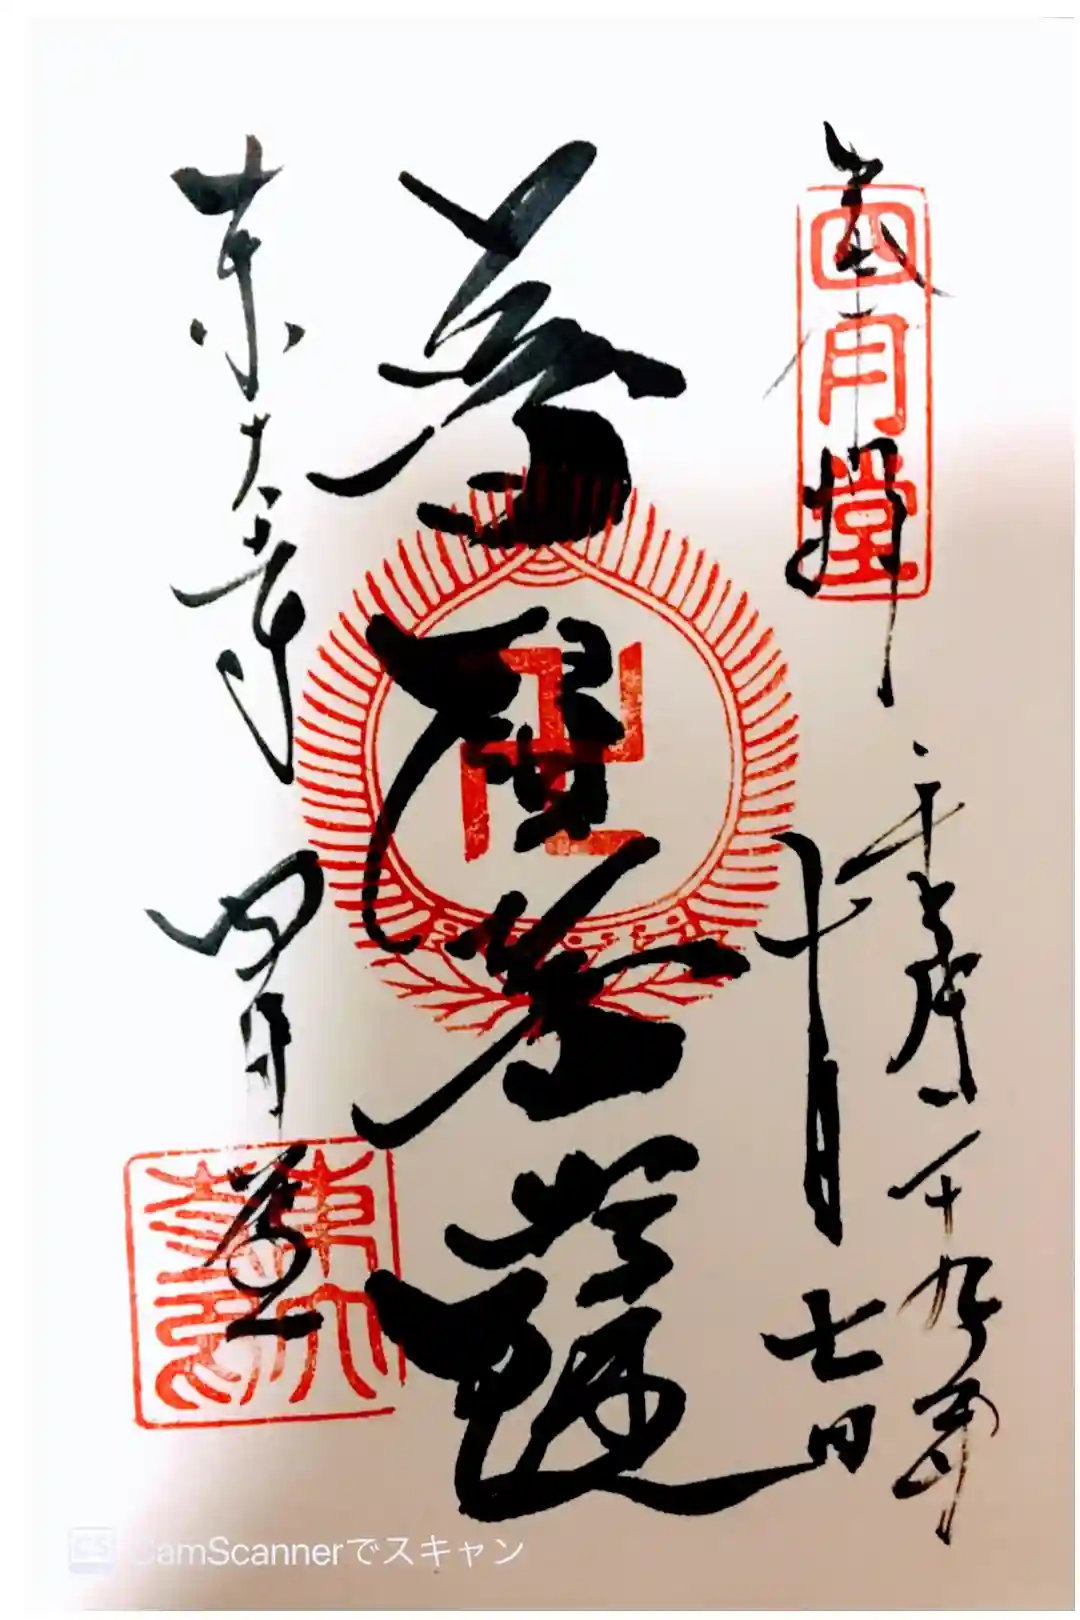 奉拝
四月堂
平成二十九年
十月七日
普賢菩薩
東大寺 四月堂
CS CamScannerでスキャン